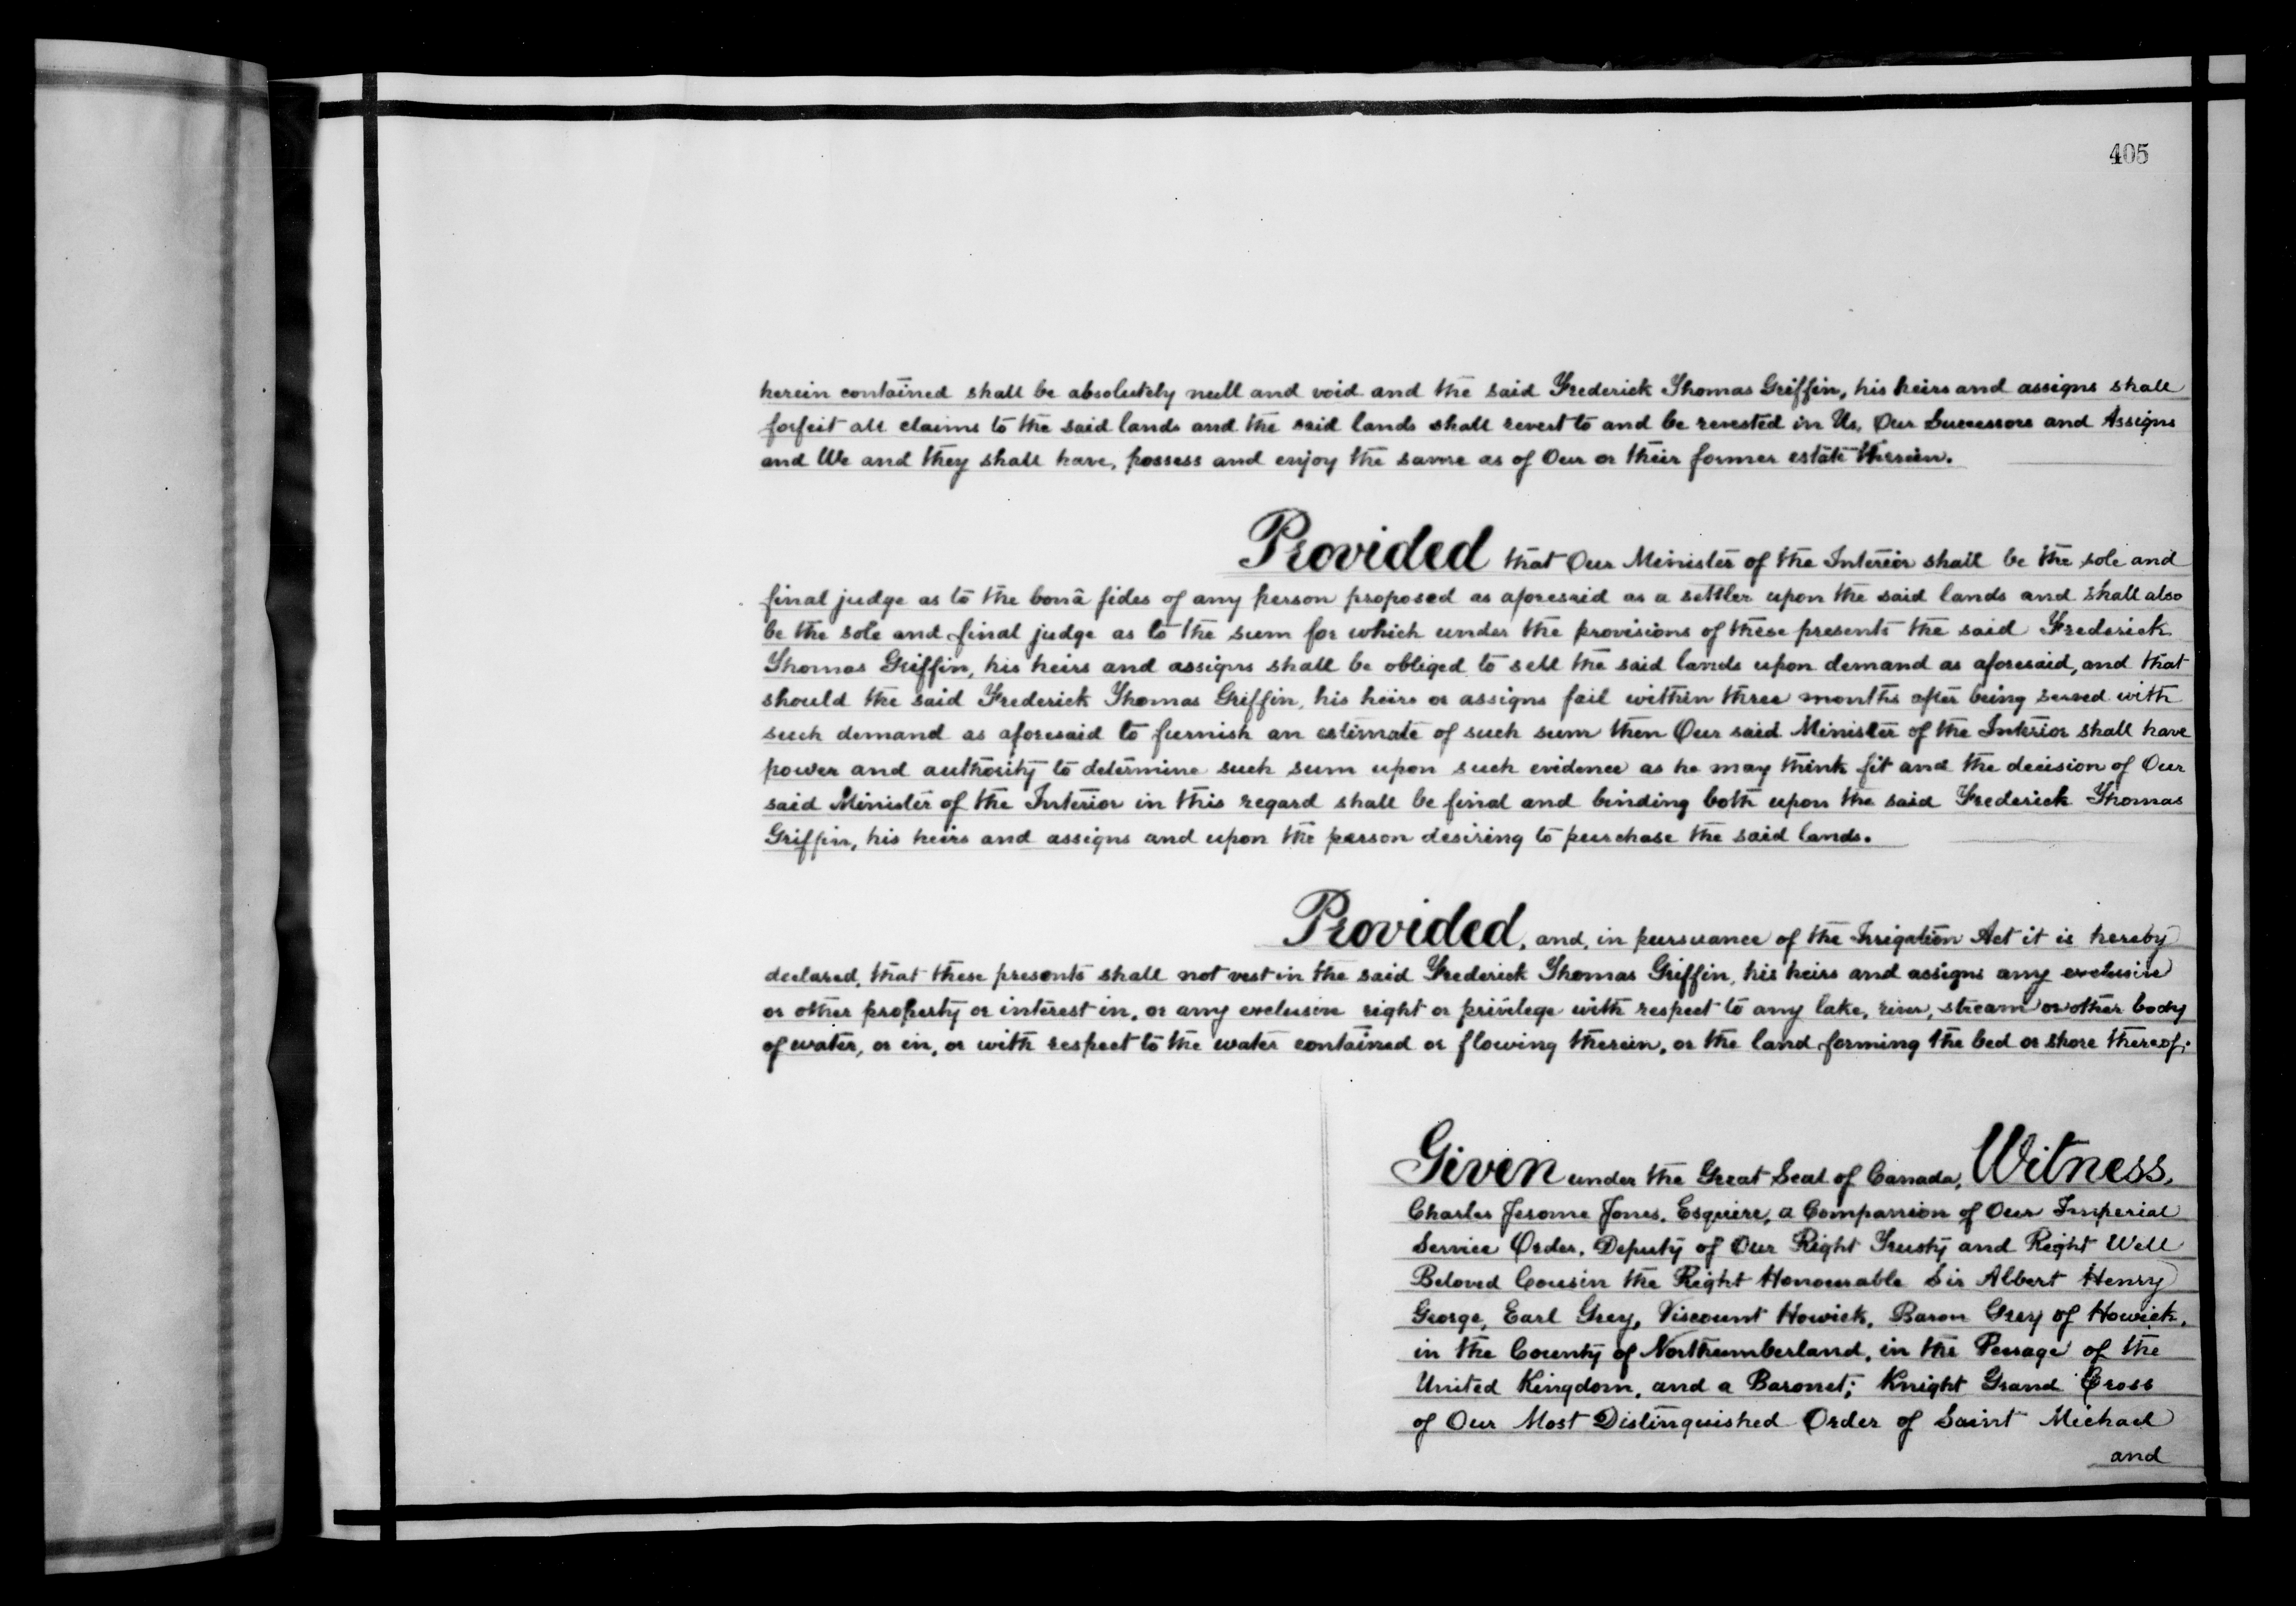 405
herein contained shall be absolutely null and void and the said Frederick Thomas Griffin, his heirs and assigns shall
forfeit all claims to the said lands and the said lands shall revert to and be revested in Us, Our Successors and Assigns
and We and they shall have, possess and enjoy the same as of Our or their former estate therein.
Provided that Our Minister of the Interior shall be the sole and
final judge as to the bonâ fides of any person proposed as aforesaid as a settler upon the said lands and shall also
be the sole and final judge as to the sum for which under the provisions of these presents the said Frederick
Thomas Griffin, his heirs and assigns shall be obliged to sell the said lands upon demand as aforesaid, and that
should the said Frederick Thomas Griffin, his heirs or assigns fail within three months after being served with
such demand as aforesaid to furnish an estimate of such sum then Our said Minister of the Interior shall have
power and authority to determine such sum upon such evidence as he may think fit and the decision of Our
said Minister of the Interior in this regard shall be final and binding both upon the said Frederick Thomas
Griffin, his heirs and assigns and upon the person desiring to purchase the said lands.
Provided, and, in pursuance of the Irrigation Act it is hereby
declared, that these presents shall not vest in the said Frederick Thomas Griffin, his heirs and assigns any exclusive
or other property or interest in, or any exclusive right or privilege with respect to any lake, river, stream or other body
of water, or in, or with respect to the water contained or flowing therein, or the land forming the bed or shore thereof;
Given under the Great Seal of Canada, Witness,
Charles Jerome Jones, Esquire, a Companion of Our Imperial
Service Order, Deputy of Our Right Trusty and Right Well
Beloved Cousin the Right Honourable Sir Albert Henry
George, Earl Grey, Viscount Howick, Baron Grey of Howick,
in the County of Northumberland, in the Peerage of the
United Kingdom, and a Baronet; Knight Grand Cross
of Our Most Distinguished Order of Saint Michael
and